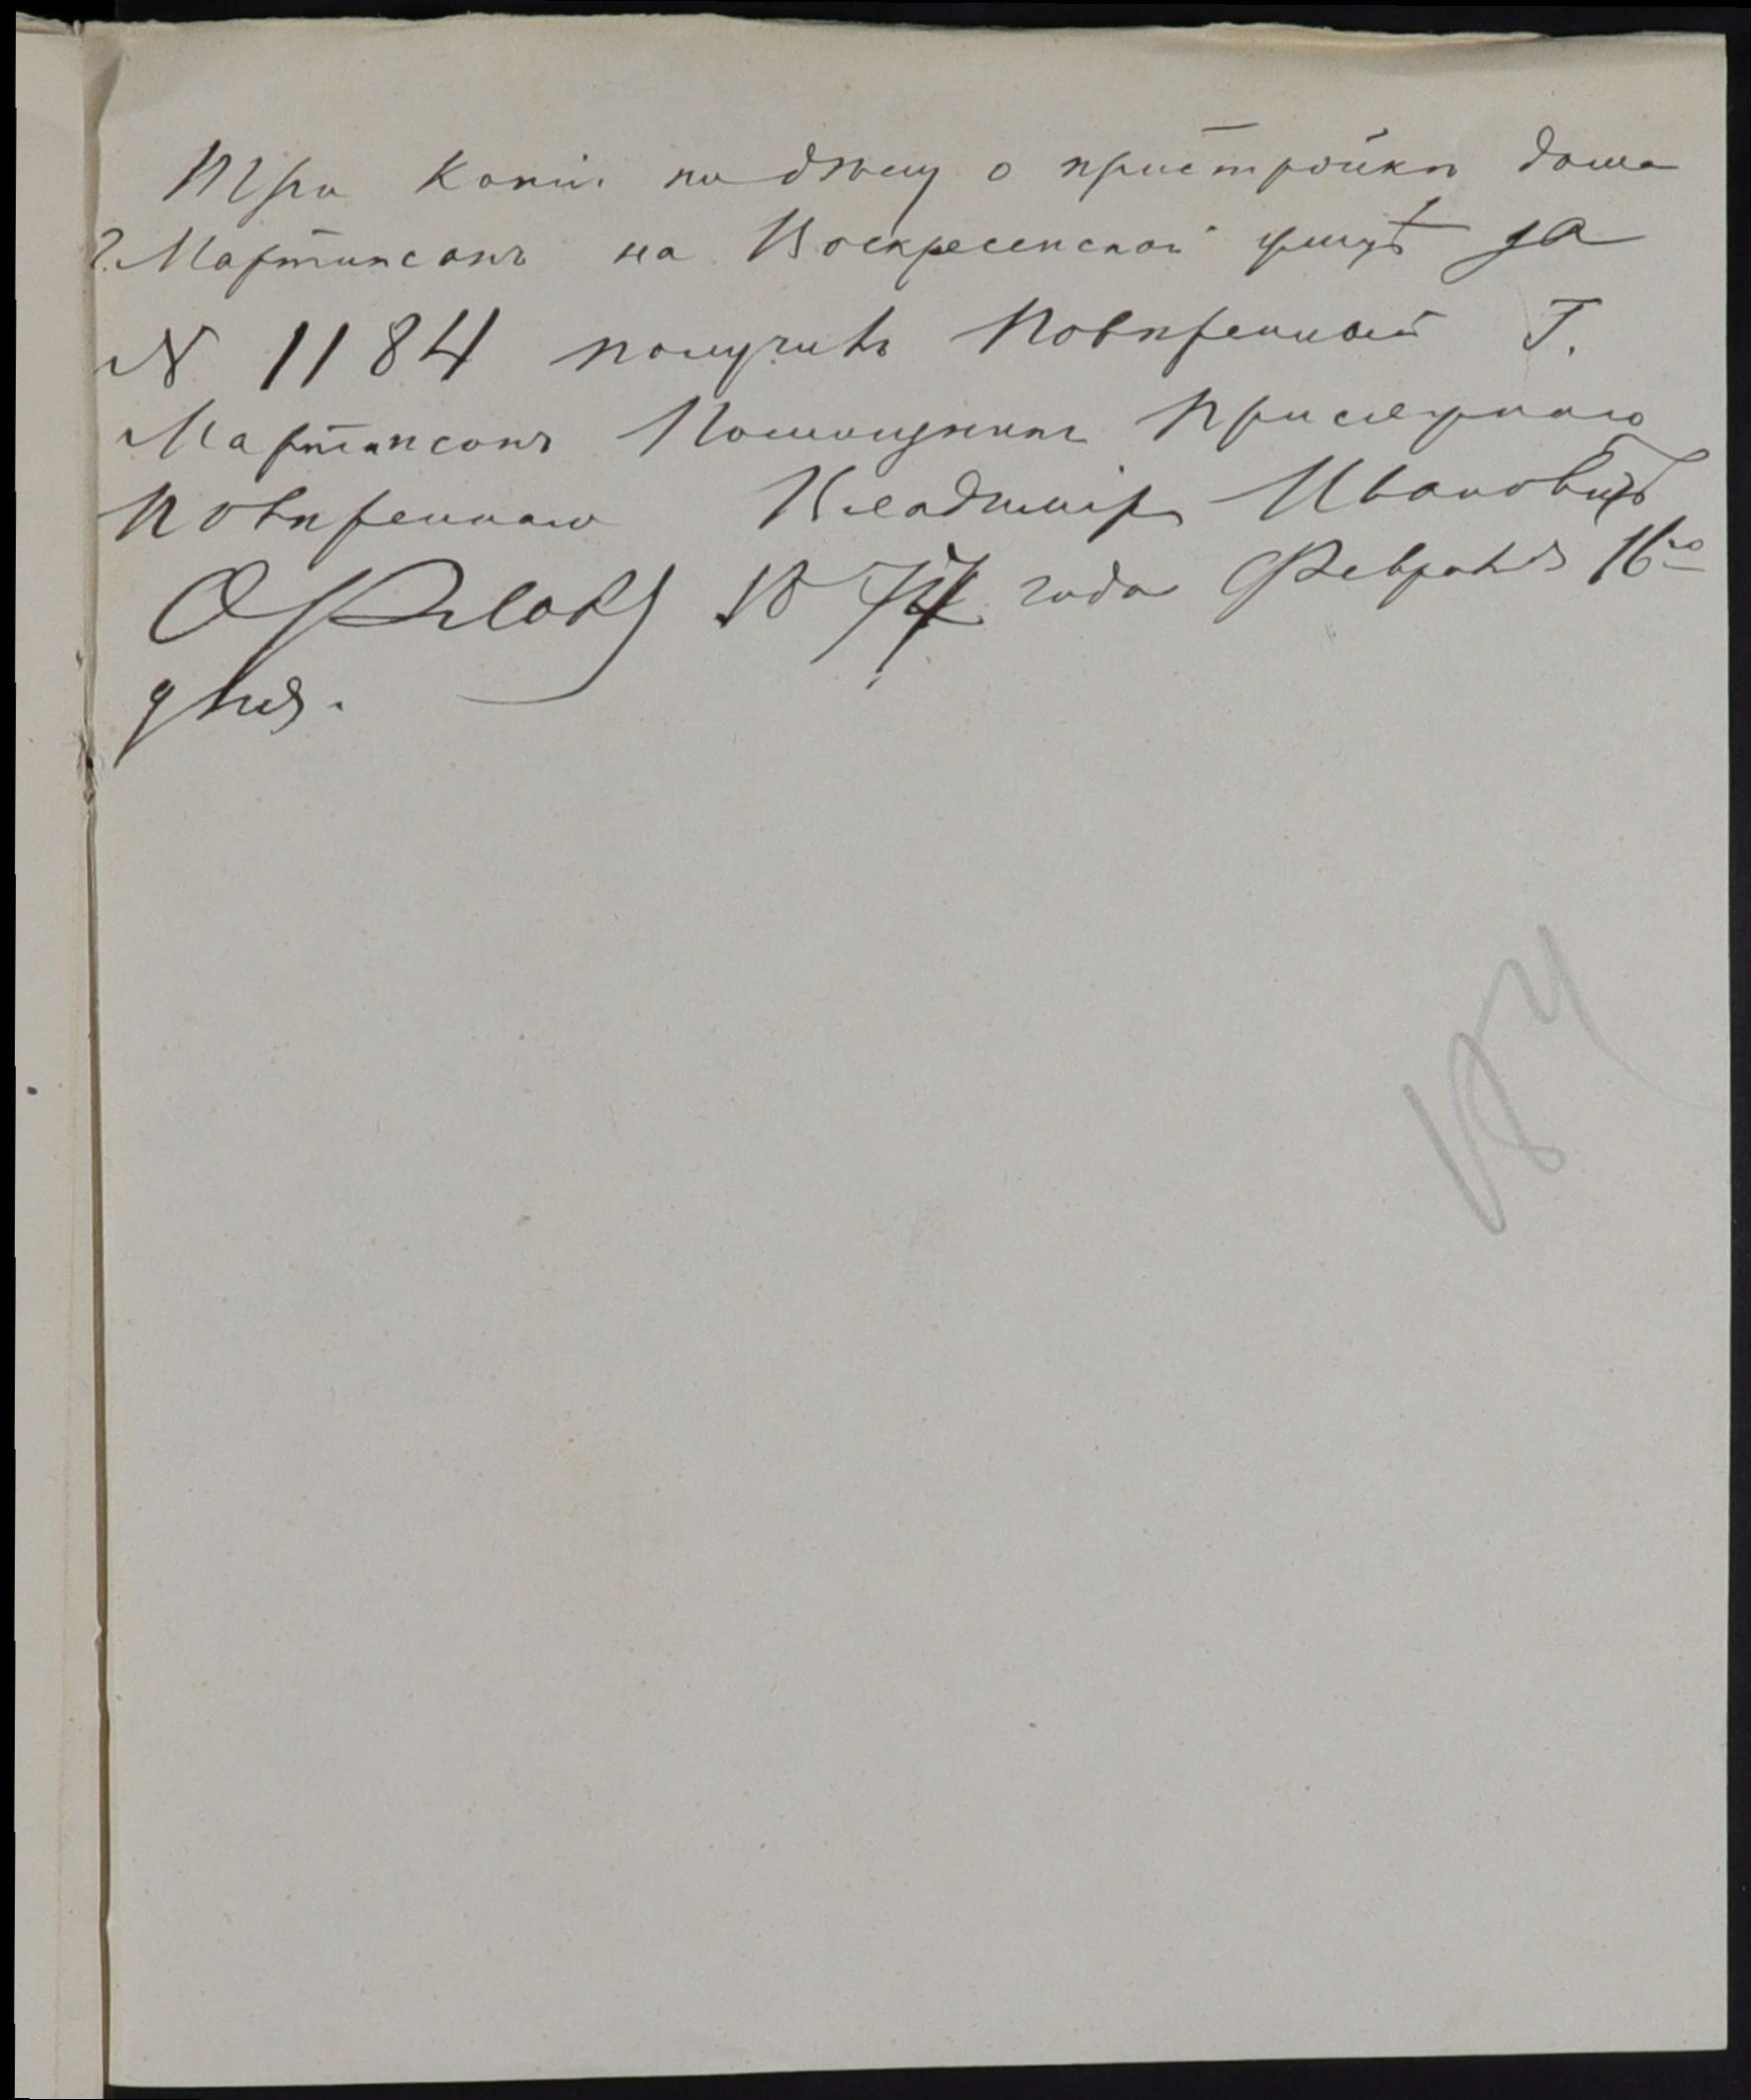 Три копiи по дѣлу о пристройкѣ дома
Г. Мартинсонъ на Воскресенской улицѣ за
N 1184 получилъ Повѣренный Г.
Мартинсонъ Помощникъ Присяжнаго
Повѣреннаго Владимiръ Ивановичъ
Орловъ 1874 года Февраля 16го
дня.
184